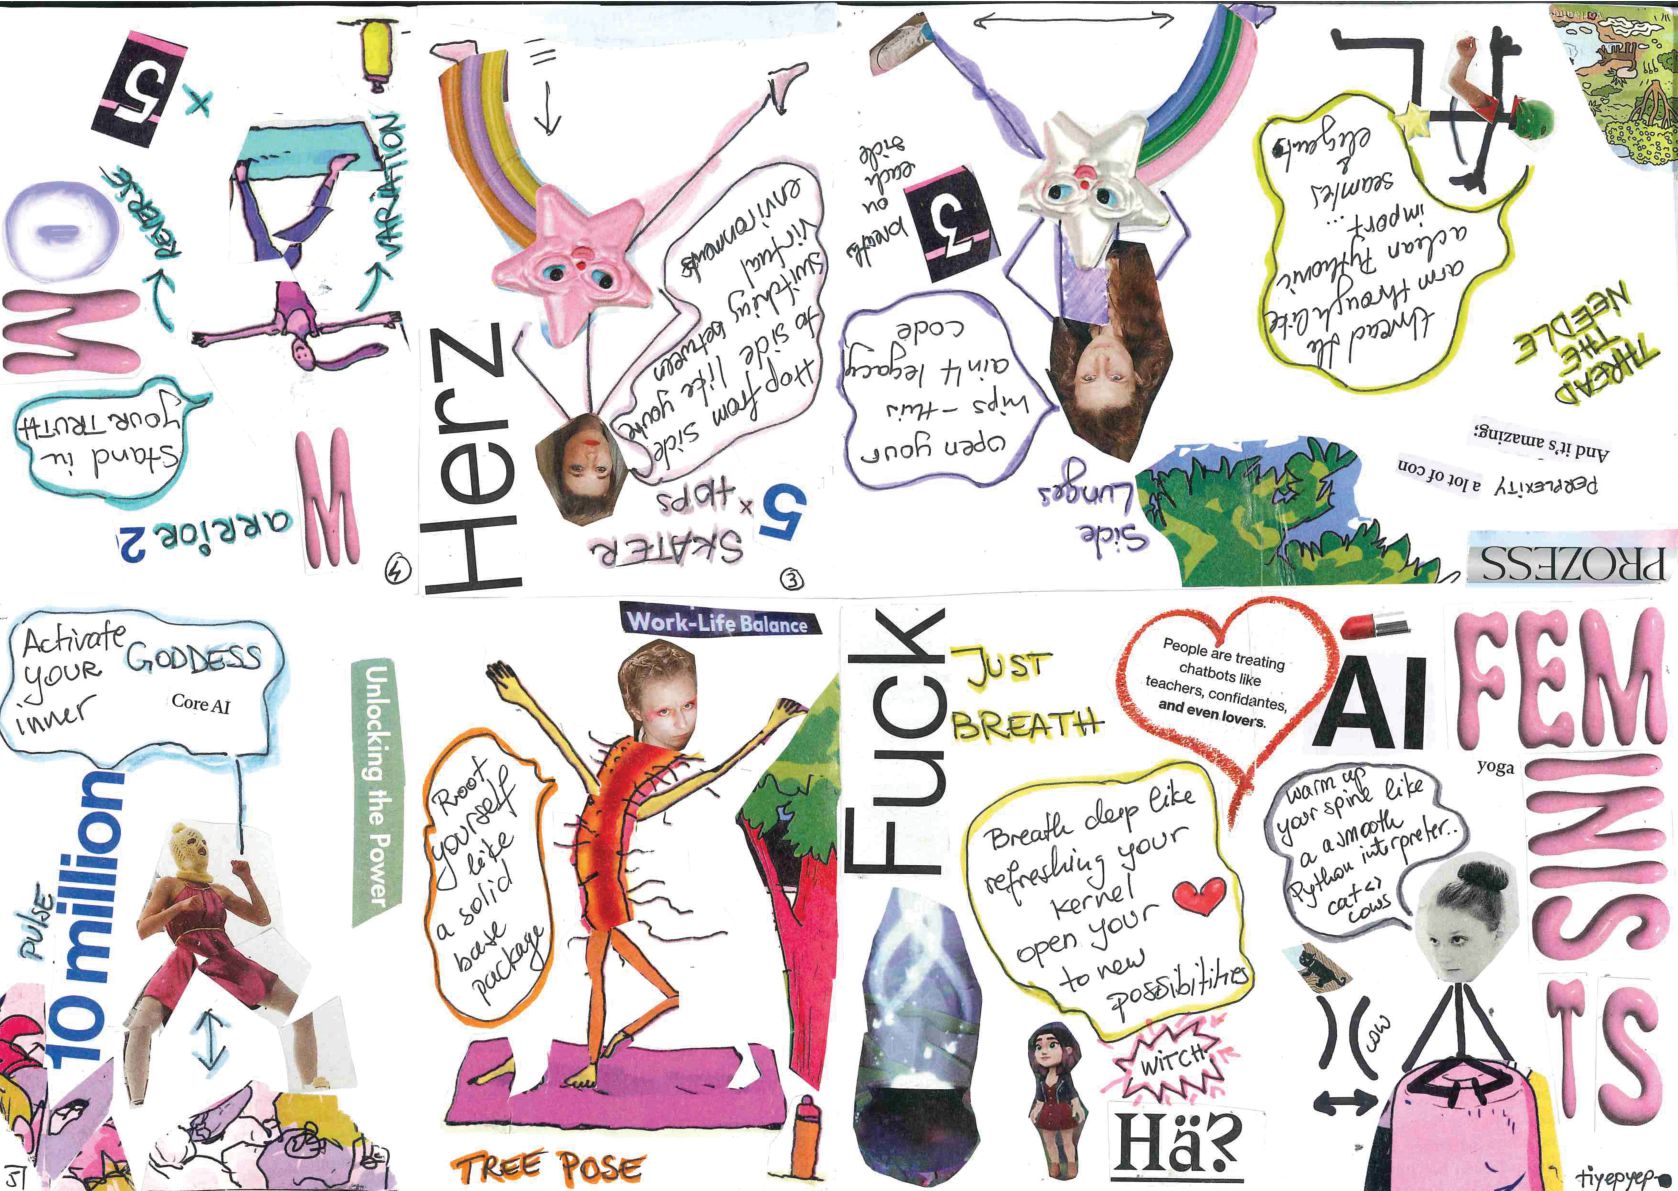 4
WARRIOR 2
Stand in
YOUR TRUTH
OM
REVERSE
VARIATION
5 x
Herz
3
SKATER
5 x HOPS
Hop from side
to side like you're
switching between
virtual
environments
Side
Lunges
open your
hips - this
ain't legacy
code
3 breaths
on each
side
PROZESS
PERPLEXITY a lot of con
And it's amazing,
THREAD
THE
NEEDLE
thread the
arm through like
a clean Pythonic
import...
seamles
&
elegent
Activate
your GODDESS
inner
Core AI
Unlocking the Power
PULSE
10 million
Work-Life Balance
Root
yourself
like
a solid
base
package
TREE POSE
Fuck
JUST
BREATH
People are treating
chatbots like
teachers, confidantes,
and even lovers.
Breath deep like
refreshing your
kernel
open your
to new
possibitities
WITCH
Hä?
AI
FEMINISTS
yoga
warm up
your spine like
a a smooth
Python interpreter..
cat <>
cows
cow
tiyepyep